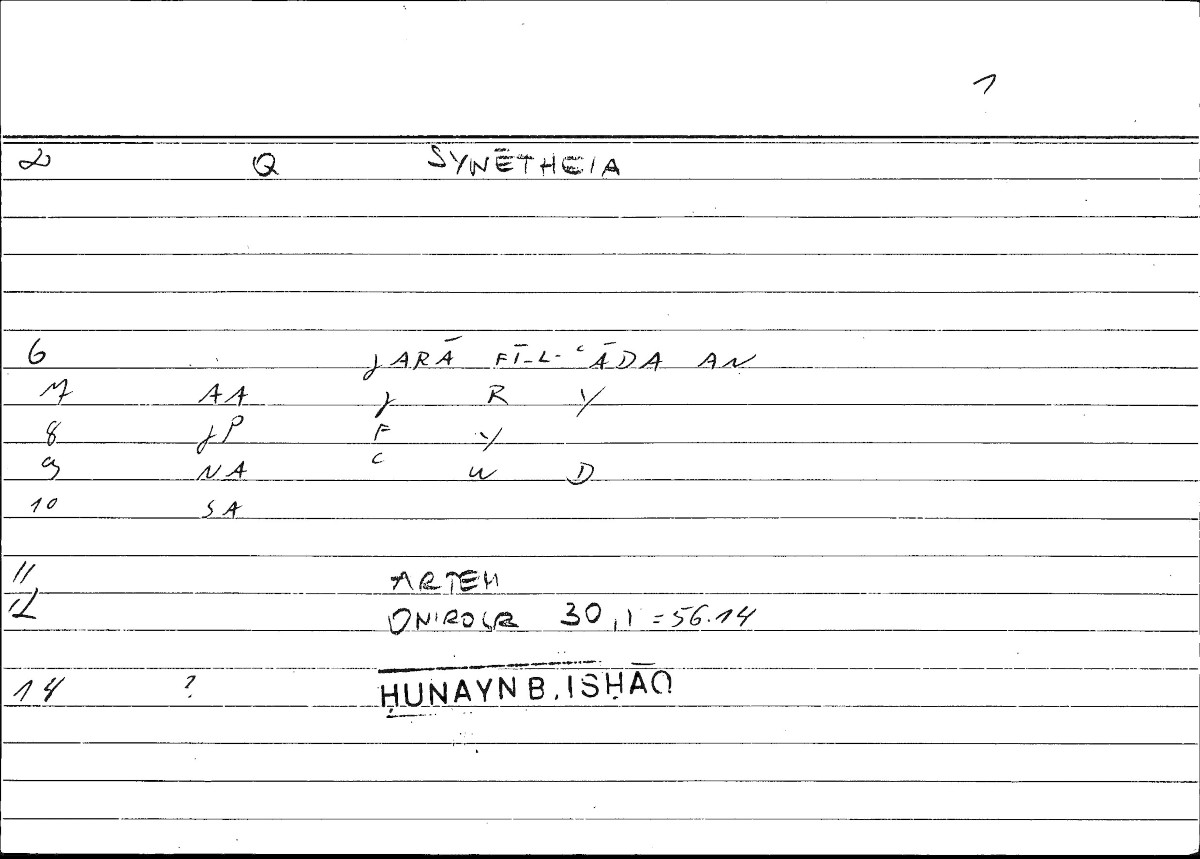 1
2 Q SYNĒTHEIA
6 JARĀ FĪ-L-ʿĀDA AN
7 AA J R Y
8 JP F Y
9 NA ʿ W D
10 SA
11 ARTEM
12 ONIROCR 30,1 =56.14
14 ? ḤUNAYN B. ISḤĀQ